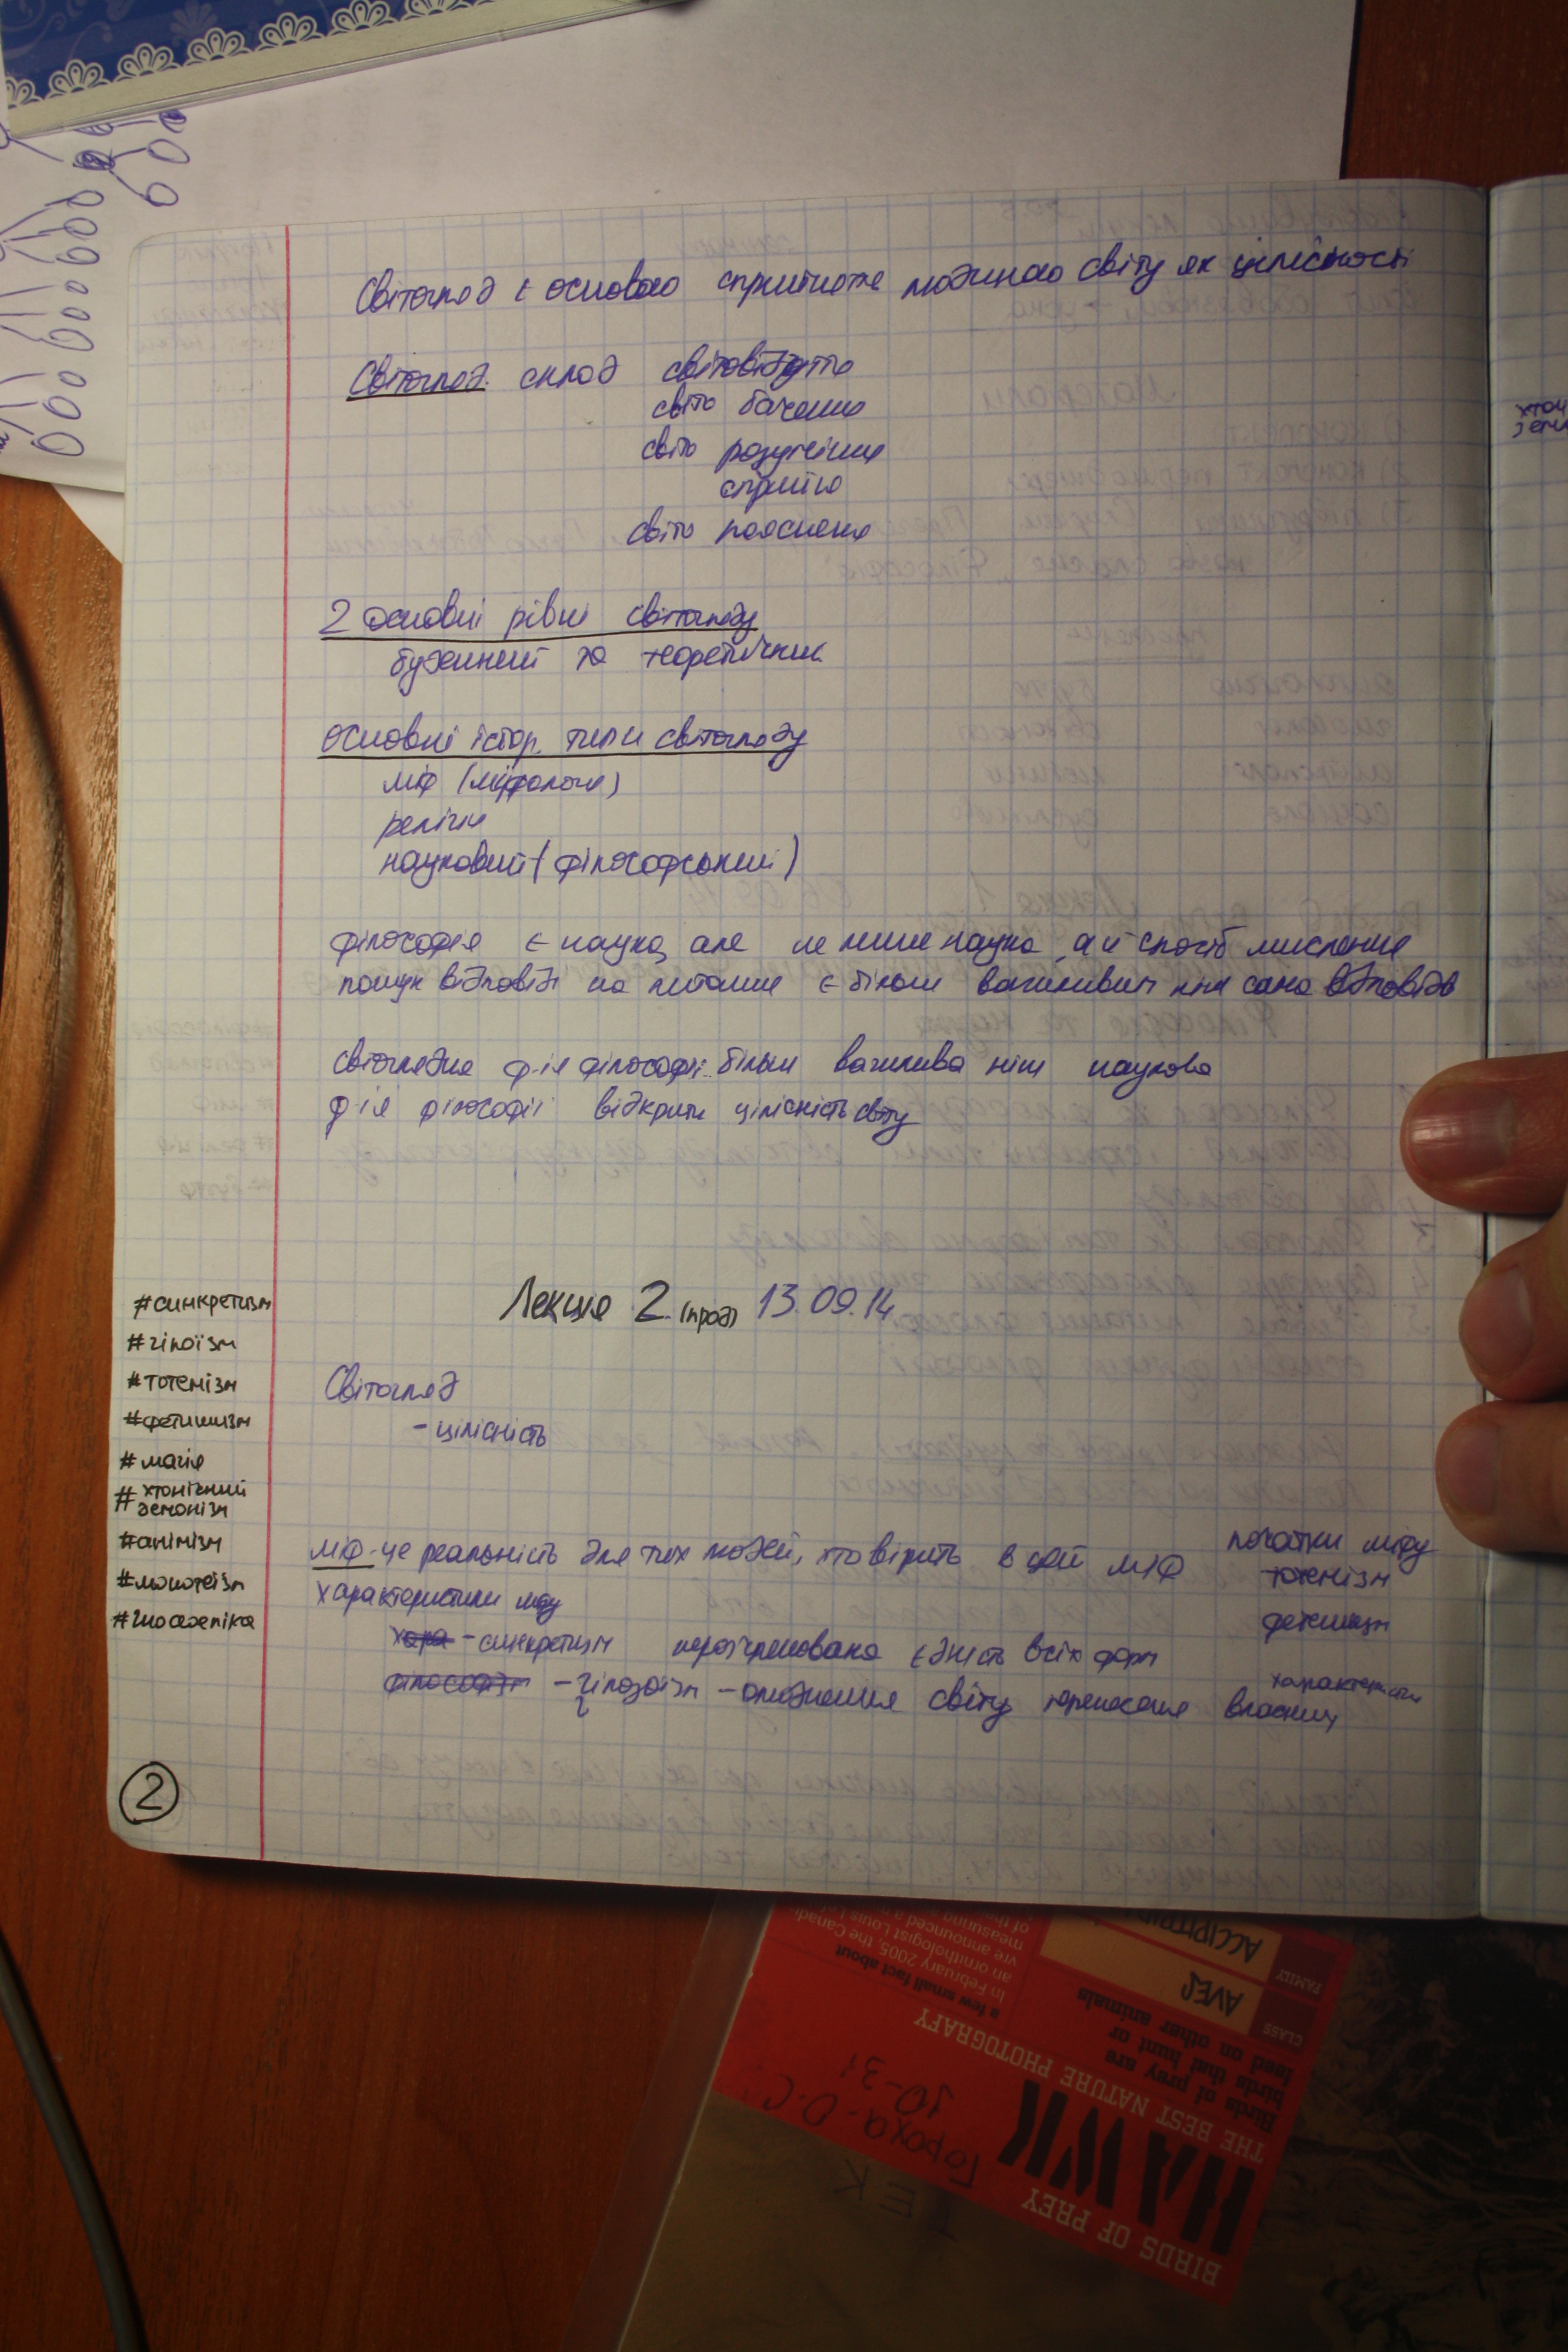 Світогляд є основою сприйняття людиною світу як цілісності
Світогляд. склад світовідчуття
світо бачення
світо розуміння
сприйня
світо пояснення
2 основні рівні світогляду
буденний та теоретичний
основні істор. типи світогляду
міф (міфологія)
релігія
науковий (філософський)
філософія є наука, але не лише наука, а й спосіб мислення
пошук відповіді на питання є більш важливим ніж сама відповідь
світоглядна ф-ія філософії більш важлива ніж наукова
ф-ія філософії відкрити цілісність світу
Лекція 2. (прод) 13.09.14
#синкретизм
#гілоїзм
#тотемізм
#фетишизм
#магія
#хтонічний
демонізм
#анімізм
#монотеїзм
#іносезеніка
Світогляд
- цілісність
міф - це реальність для тих людей, хто вірить в цей міф
початки міфу
тотемізм
фетишизм
характеристики міфу
хара - синкретизм нерозчленована єдність всіх форм
філософізм - гілозоїзм - олюднення світу, перенесення власних
характеристик
2
хтон
земл
BIRDS OF PREY
HAWK
THE BEST NATURE PHOTOGRAFY
Birds of prey are
birds that hunt or
feed on other animals
CLASS
AVES
FAMILY
a few small fact about
In February 2005, the Canadi
an ornithologist Louis
vre announced a m
of measuring
Гороха О.С.
ТЕК